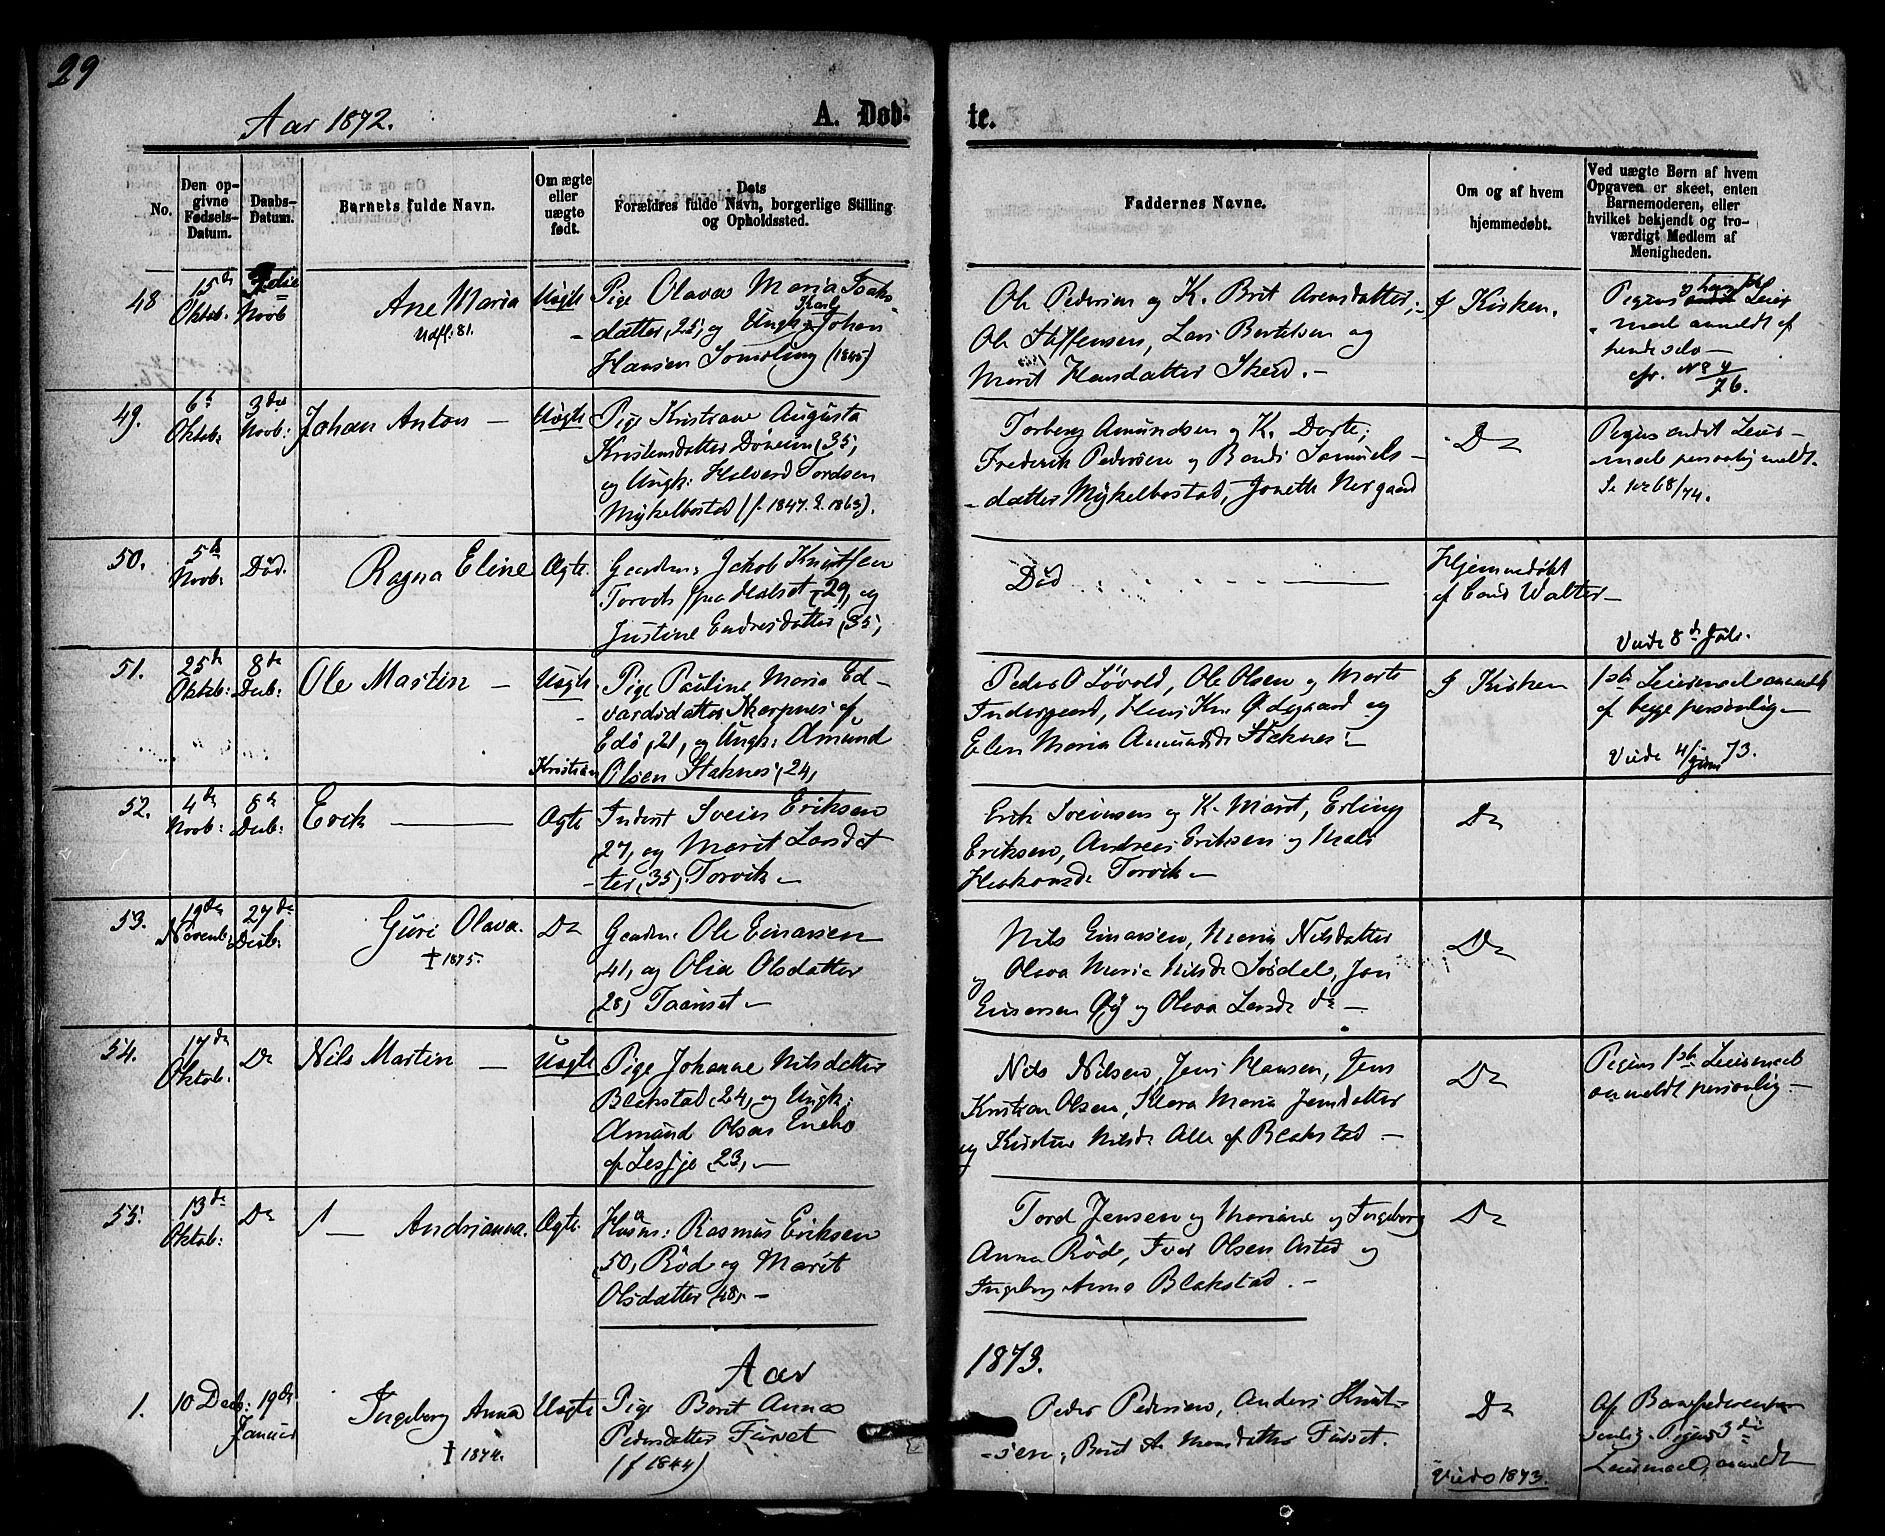 29
Aar 1872.
A. Døb-
te.
No.
Den op-
givne
Fødsels-
Datum.
Daabs-
Datum.
Barnets fulde Navn.
Om ægte
eller
uægte
født.
Dets
Forældres fulde Navn, borgerlige Stilling
og Opholdssted.
Faddernes Navne.
Om og af hvem
hjemmedøbt.
Ved uægte Børn af hvem
Opgaven er skeet, enten
Barnemoderen, eller
hvilket bekjendt og tro-
værdigt Medlem af
Menigheden.
48
15de
Oktob.
Novb
Ane Maria
Udfl. 81.
Uægte
Pige Olava Maria Isaks-
datter, 25, og Ungk: Karl Johan
Hansen (1845)
Ole Pedersen og K. Brit Arensdatter;
Ole Steffensen, Lars Bertelsen og
Marit Hansdatter
I Kirken.
Pigens Leier-
maal anmeldt af
hende selv
cfr. No 4/76.
49.
6te
Oktob:
3die
Novb:
Johan Anton —
Uægte
Pige Kristiane Augusta
Kristensdatter 35,
og Ungk: Halvard Tordsen
Myklebostad (f. 1847. 1863).
Torberg Amundsen og K. Dorte;
Frederik Pedersen og Samuels-
datter Myklebostad, Nergaard
Do
Pigens andet Leier-
maal personlig meldt.
Se No 68/74.
50.
5te
Novb:
Død.
Ragna Eline
Ægte.
Gaardm: Jakob Knutsen
Torvik fra Halset, 29, og
Justine Endresdatter, 35,
Død
Hjemmedøbt
af Walter
51.
25de
Oktob:
8de
Decb:
Ole Martin —
Uægte
Pige Pauline Maria Ed-
vardsdatter af
Edø, 21, og Ungk: Amund
Kristian
Olsen Staknes, 24,
Peder O Løvold, Ole Olsen og Marte
Indergaard, Hans Kr. Ødegaard og
Elen Maria Amundsdr Staknes.
I Kirken
Viede 8de Juli.
1ste Leiermaal anmeldt
af begge personlig
Viede 4/Juni 73.
52.
4de
Novb:
8de
Decb:
Erik
Ægte
Inderst Svein Eriksen
27, og Marit Larsdat-
ter, 35, Torvik
Erik Sveinsen og K. Marit, Erling
Eriksen, Andreas Eriksen og
Haakonsdr Torvik
Do
53.
19de
Novemb:
27de
Decb:
Guri Olava.
† 1875.
Do
Gaardm: Ole Einarsen
41, og Olia Olsdatter
28,
Nils Einarsen, Maria Nilsdatter
og Olava Maria Nilsdr Sørdal, Jon
Einarsen Øy og Olava Larsdr Do
Do
54.
17de
Oktob.
Do
Nils Martin —
Uægte
Pige Johanne Nilsdatter
Blakstad, 24, og Ungk:
Amund Olsen
af Lesje 23,
Nils Nilsen, Jens Hansen, Jens
Kristian Olsen, Klara Maria Jensdatter
og Nilsdr Alle af Blakstad
Do
Pigens 1ste Leiermaal
anmeldt personlig
55.
13de
Oktob:
Do
Andrianna.
Ægte
Husm: Rasmus Eriksen
50, Röd og Marit
Olsdatter 48,
Tord Jensen og Mariane og Ingeborg
Anna Röde, Iver Olsen og
Ingeborg Anna Blakstad.
Do
Aar
1873.
1.
10 Decb:
19de
Januar
Ingeborg Anna
† 1874.
Uægte
Pige Berit Anna
Pedersdatter Furset
(f 1844)
Peder Pedersen, Anders Knut-
sen, Berit A. Monsdatter Furset.
Do
Viede 1873.
Af Barnefaderen
Pigens 3die
Leiermaal, anmeldt